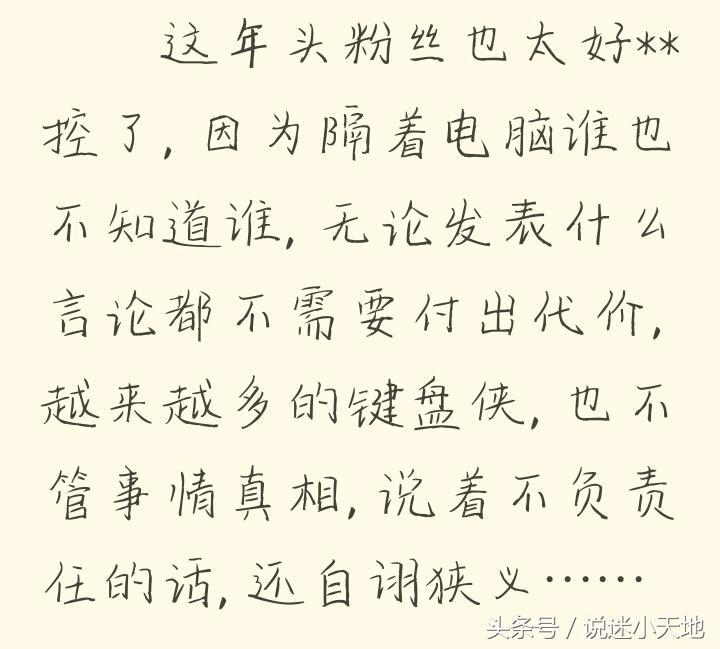 这年头粉丝也太好**
控了,因为隔着电脑谁也
不知道谁,无论发表什么
言论都不需要付出代价,
越来越多的键盘侠,也不
管事情真相,说着不负责
任的话,还自诩狭义……
头条号 / 说迷小天地